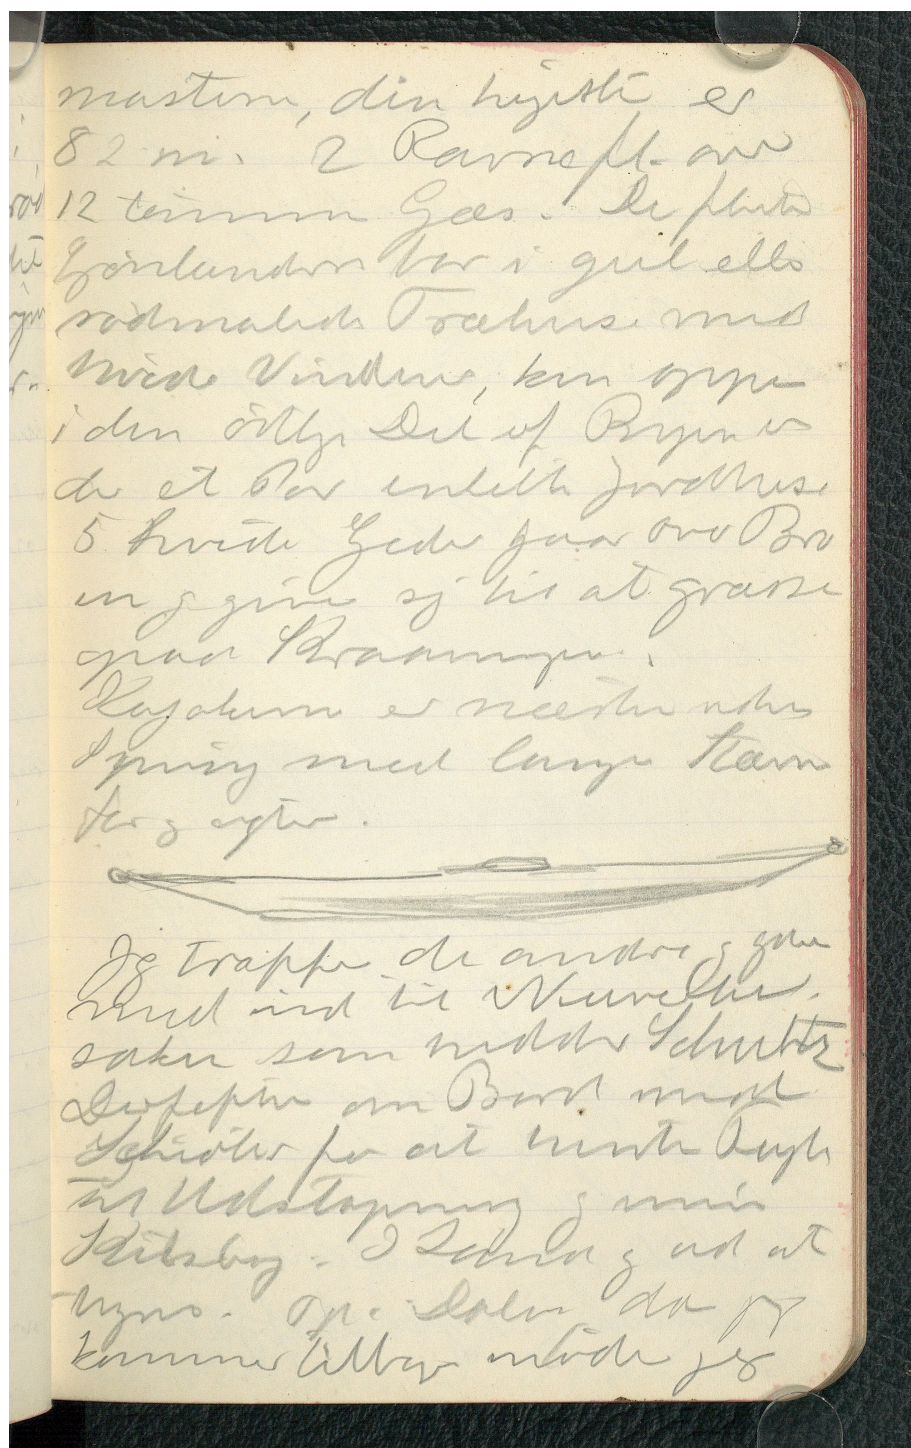 masterne, den højeste er
82 m. 2 Ravne fl. over
12 tamme Gæs. De fleste
Grönlændere bor i gul eller
rødmalede Træhuse med
hvide Vinduer, kun oppe
i den östlige Del af Byen er
der et Par enkelte Jordhuse
5 hvide Geder gaar over Bro
en g giver sig til at græsse
paa Skraaningen.
Kajakerne er næsten uden
Spring med lange Stævne
for g agter.
Jeg træffer de andre g gaar
med ind til
som Schultz
Derefter om Bord med
Schiøler for at hente Fugle
til Udstopning g min
Skitsbog. I Land g ud at
tegne. Op i Dalen da jeg
kommer tilbage møder jeg